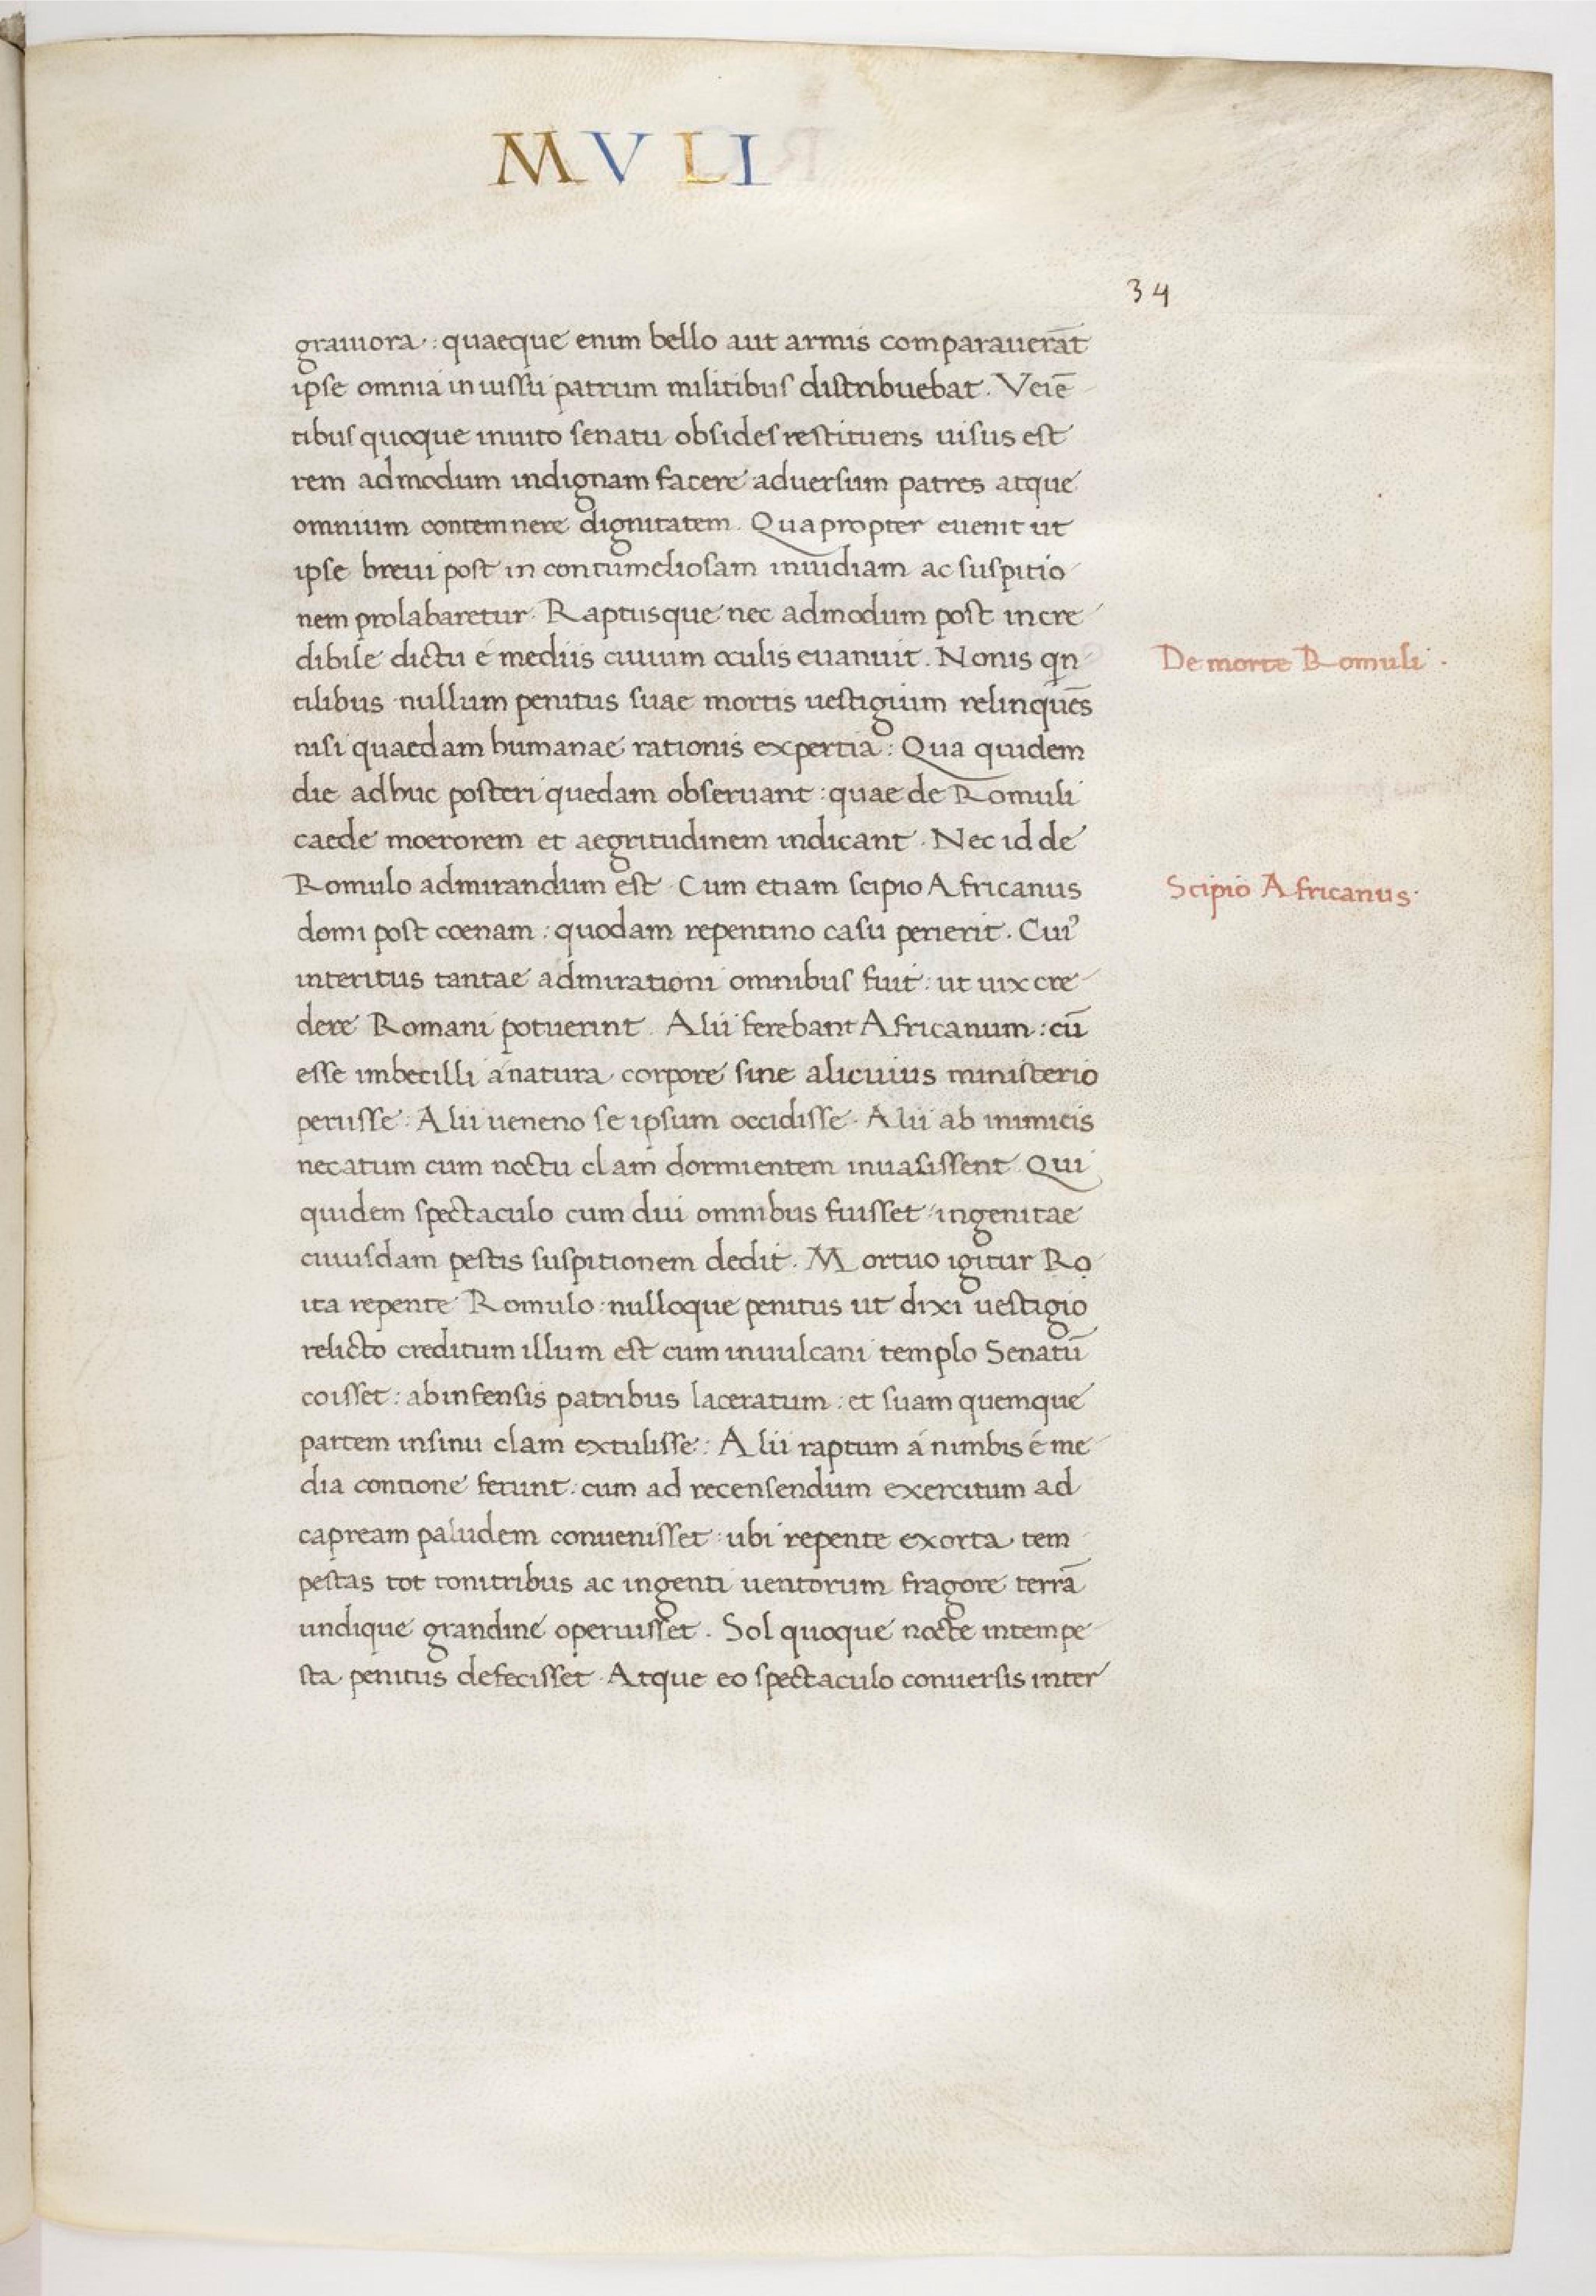 MVLI
34
grauiora : quaeque enim bello aut armis comparauerāt
ipse omnia iniussu patrum militibus distribuebat. Veiē
tibus quoque inuito senatu obsides restituens uisus est
rem admodum indignam facere aduersum patres atque
omnium contemnere dignitatem. Quapropter euenit ut
ipse breui post in contumeliosam inuidiam ac suspitio
nem prolabaretur. Raptusque nec admodum post incre
dibile dictu é mediis ciuium oculis euanuit. Nonis qn
De morte Romuli.
tilibus nullum penitus suae mortis uestigium relinquēs
nisi quaedam humanae rationis expertia: Qua quidem
die adhuc posteri quedam obseruant : quae de Romuli
caede moerorem et aegritudinem indicant. Nec id de
Romulo admirandum est. Cum etiam scipio Africanus
Scipio Africanus.
domi post coenam : quodam repentino casu perierit. Cuiꝰ
interitus tantae admirationi omnibus fuit: ut uix cre
dere Romani potuerint. Alii ferebant Africanum : cū
esse imbecilli á natura corpore sine alicuius ministerio
periisse: Alii ueneno se ipsum occidisse. Alii ab inimicis
necatum cum noctu clam dormientem inuasissent. Qui
quidem spectaculo cum diu omnibus fuisset: ingenitae
cuiusdam pestis suspitionem dedit. Mortuo igitur Ro
ita repente Romulo : nulloque penitus ut dixi uestigio
relicto creditum illum est cum inuulcani templo Senatū
coisset : ab infensis patribus laceratum : et suam quemque
partem insinu clam extulisse: Alii raptum á nimbis é me
dia contione ferunt: cum ad recensendum exercitum ad
capream paludem conuenisset : ubi repente exorta tem
pestas tot tonitribus ac ingenti uentorum fragore terrā
undique grandine operuisset. Sol quoque nocte intempe
sta penitus defecisset. Atque eo spectaculo conuersis inter